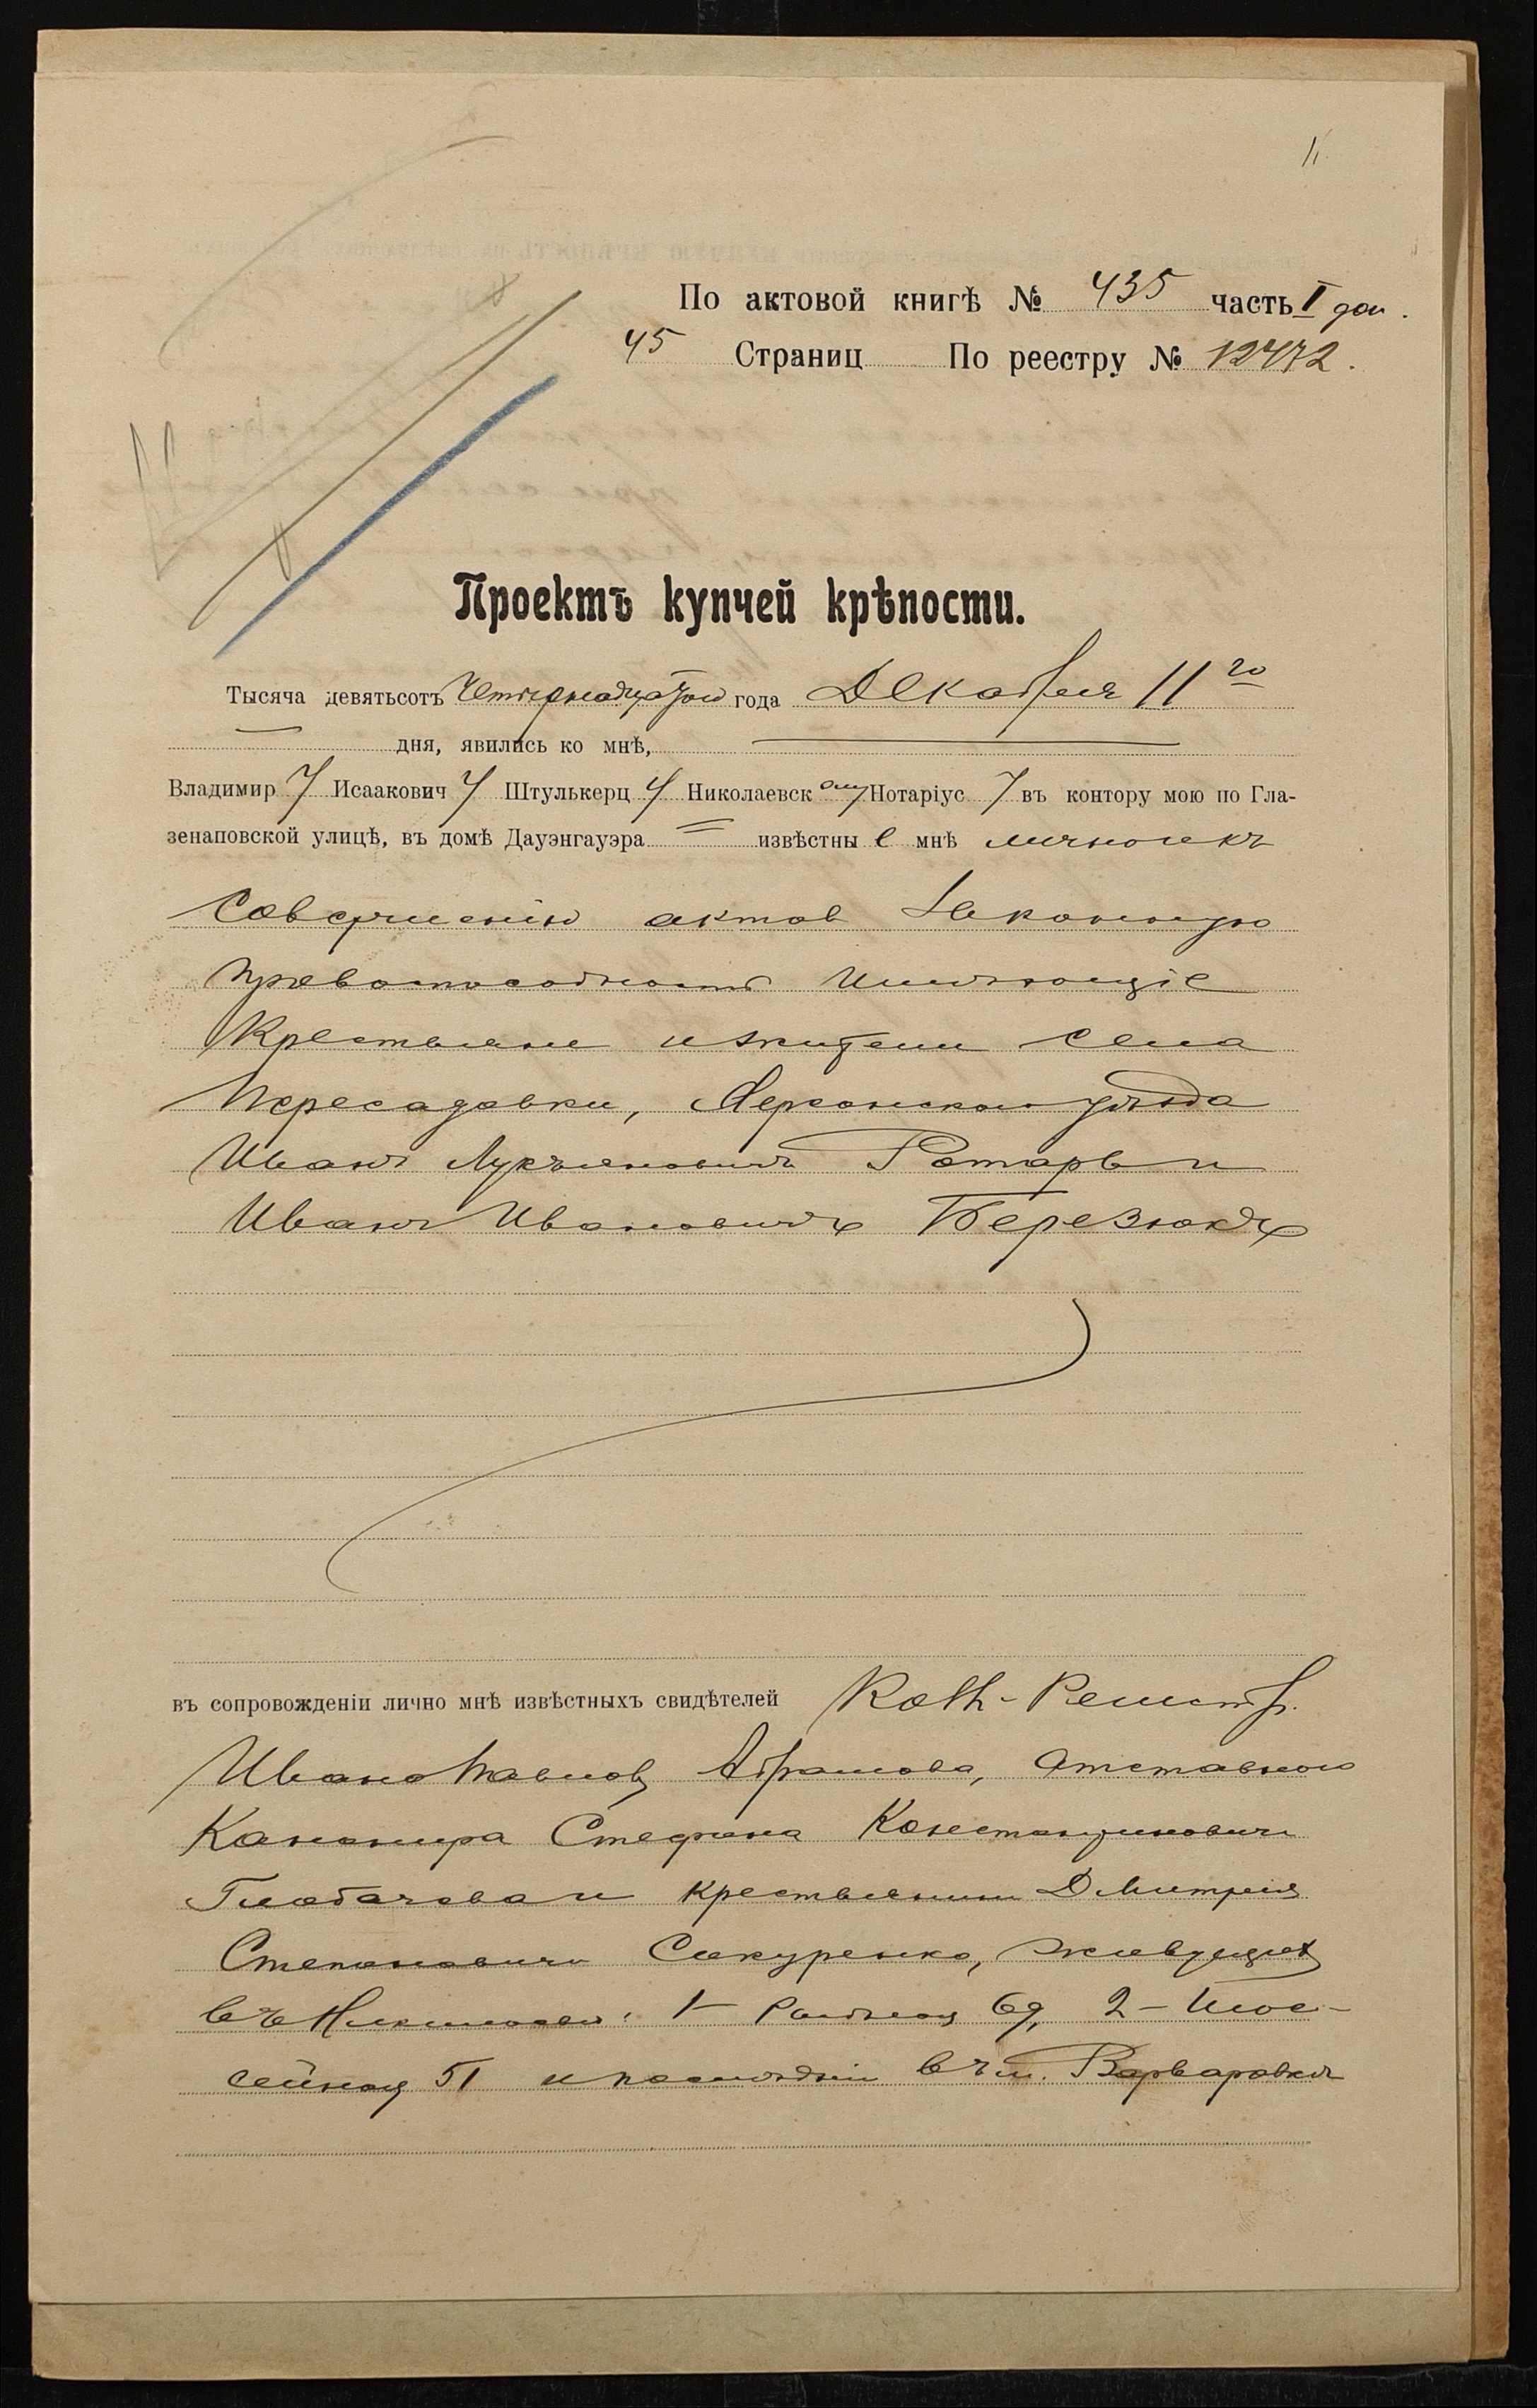 11
По актовой книгѣ № 435 часть I доп.
45 Страниц По реестру № 12472.
Проектъ купчей крѣпости.
Тысяча девятьсотъ четырнадцатаго года Декабря 11го
дня, явились ко мнѣ,
Владимир у Исаакович у Штулькерц у Николаевск ому Нотаріус у въ контору мою по Гла-
зенаповской улицѣ, въ домѣ Дауэнгауэра извѣстны е мнѣ лично и къ
совершенію актов законную
правоспособность имѣющіе
крестьяне и жители села
Пересадовки, Херсонскаго уѣзда
Иванъ Лукъяновичъ Ротарь и
Иванъ Ивановичъ Березюкъ
въ сопровожденіи лично мнѣ извѣстныхъ свидѣтелей Колл. Регистр.
Ивана Павлов. Абрамова, отставного
Канонира Стефана Константиновича
Глобачева и крестьянина Дмитрія
Степановича Сакуренко, живущихъ
въ Николаевѣ: 1- 69, 2- Шос-
сейной 51 и послѣдній въ м. Варваровкѣ